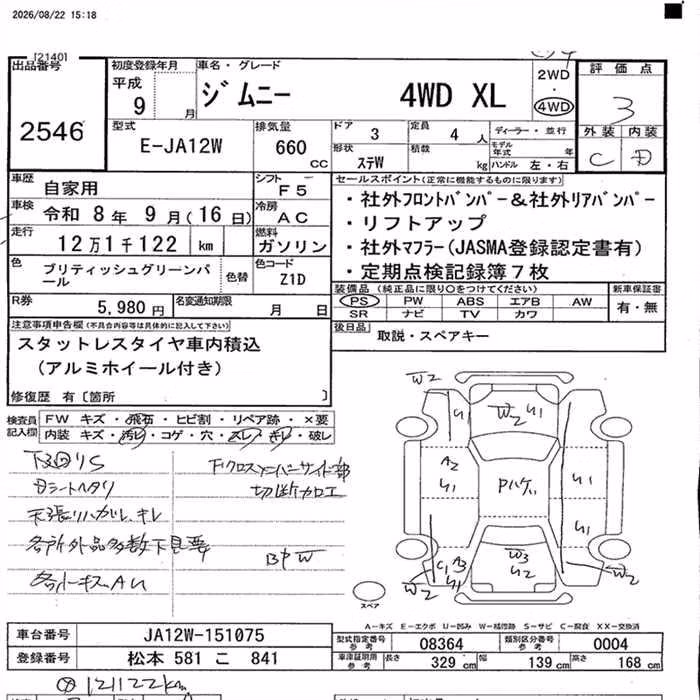 2026/08/22 15:18
[2140]
出品番号
2546
初度登録年月
平成
9 月
車名・グレード
ジムニー 4WD XL
2WD
・
4WD
評価点
3
外装 内装
C D
型式
E-JA12W
排気量
660 CC
ドア 3
定員 4 人
ディーラー・並行
モデル年式 年
形状 ステW
積載 kg
ハンドル 左・右
車歴 自家用
シフト F5
車検 令和 8年 9月(16日)
冷房 AC
走行 12万1千122 km
燃料 ガソリン
色 ブリティッシュグリーンパール
色替
色コード Z1D
R券 5,980円
名変通知期限 月 日
セールスポイント(正常に機能するものに限ります)
・社外フロントバンパー&社外リアバンパー
・リフトアップ
・社外マフラー(JASMA登録認定書有)
・定期点検記録簿7枚
装備品 (純正品に限り○をつけてください)
PS PW ABS エアB AW
SR ナビ TV カワ
新車保証書
有・無
後日品 取説・スペアキー
注意事項申告欄(不具合内容等は具体的に記入して下さい)
スタットレスタイヤ車内積込
(アルミホイール付き)
修復歴 有〔箇所 〕
検査員記入欄
FW キズ・飛石・ヒビ割・リペア跡・×要
内装 キズ・汚レ・コゲ・穴・スレ・キレ・破レ
下回りS
天張リハガレ、キレ
各所外品多数下見要
切断加工
BPW
W2
U1
W2 U1
A2
U1
Pハゲ
U1
U1
W3
U2
W2
W2
スペア
A-キズ E-エクボ U-凹み W-補修跡 S-サビ C-腐食 XX-交換済
車台番号 JA12W-151075
登録番号 松本 581 こ 841
型式指定番号 参考 08364
類別区分番号 参考 0004
車庫証明用 参考 長さ 329 cm 幅 139 cm 高さ 168 cm
121122km